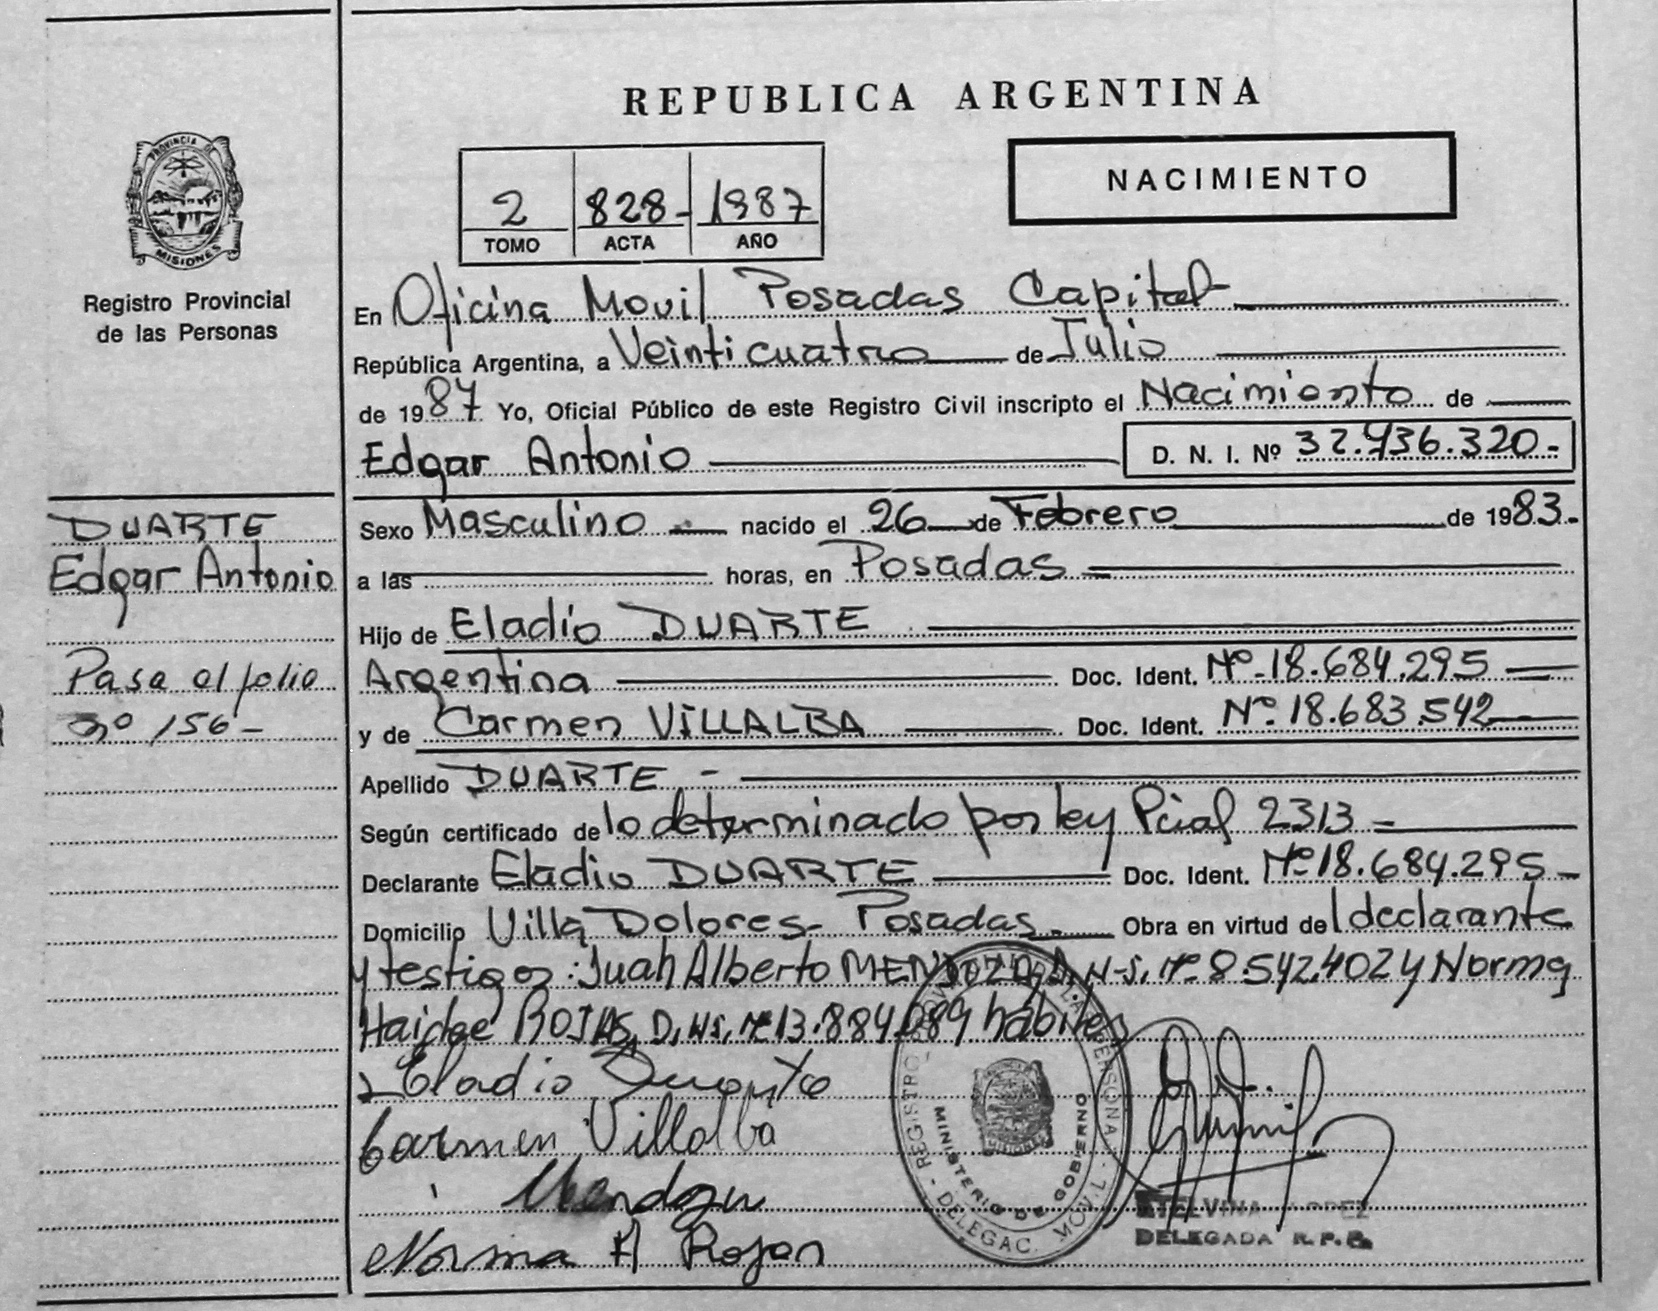 REPUBLICA ARGENTINA
PROVINCIA DE
MISIONES
Registro Provincial
de las Personas
NACIMIENTO
2 828- 1987
TOMO ACTA AÑO
En Oficina Movil Posadas Capital
República Argentina, a Veinticuatro de Julio
de 1987 Yo, Oficial Público de este Registro Civil inscripto el Nacimiento de
Edgar Antonio D. N. I. Nº 32.436.320-
DUARTE
Edgar Antonio
Pasa al folio
nº 156-
Sexo Masculino nacido el 26 de Febrero de 1983.
a las horas, en Posadas
Hijo de Eladio DUARTE
Argentina Doc. Ident. Nº 18.684.295
y de Carmen VILLALBA Doc. Ident. Nº 18.683.542
Apellido DUARTE -
Según certificado de lo determinado por ley Pcial 2313
Declarante Eladio DUARTE Doc. Ident. Nº 18.684.295-
Domicilio Villa Dolores- Posadas. Obra en virtud del declarante
y testigos: Juan Alberto MENDOZA, D.N.I. Nº 8.542.402 y Norma
Haidee ROJAS, D.N.I. Nº 13.884.089 hábiles
Eladio Duarte
Carmen Villalba
Mendoza
Norma H Rojas
REGISTRO PROVINCIAL DE LAS PERSONAS
MINISTERIO DE GOBIERNO
DELEGAC. MOVIL
ETELVINA LOPEZ
DELEGADA R.P.P.